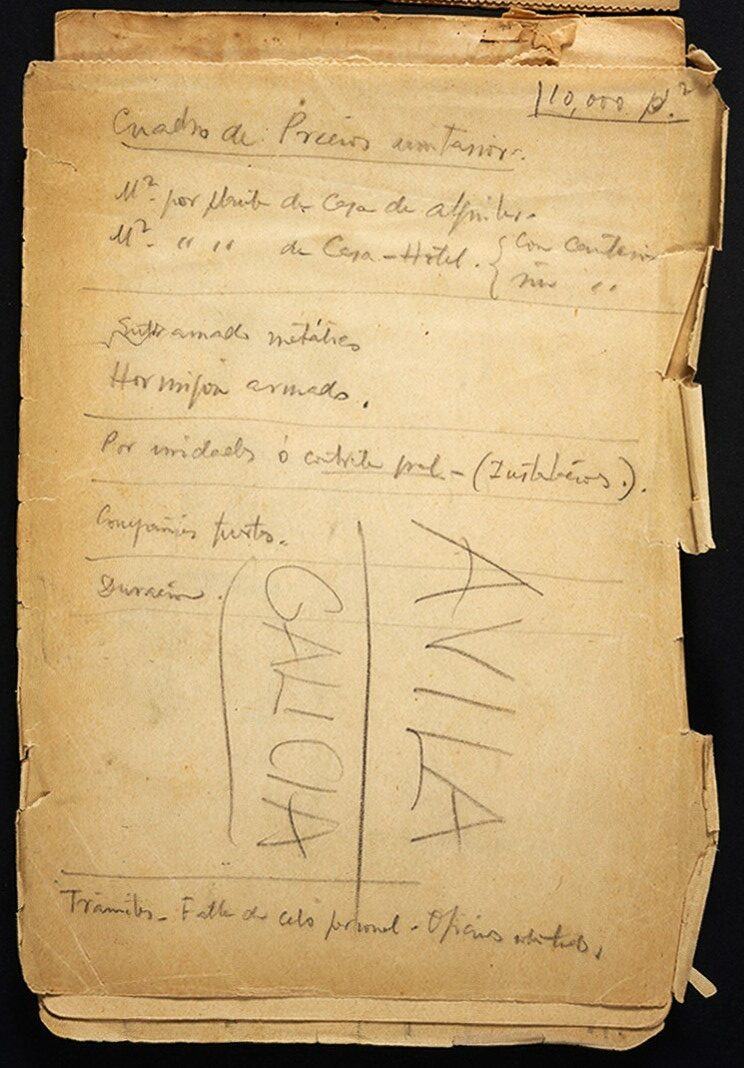 110,000 p.²
Cuadro de Precios unitarios.
M². por planta de Casa de alquiler.
M². " " de Casa-Hotel. { Con
sin "
entramado metálico
Hormigon armado.
Por unidades ó contrata gral. - (Instalaciones.).
Compañias
Duración.
AVILA
GALICIA
Trámites - Falta de celo personal - Oficios